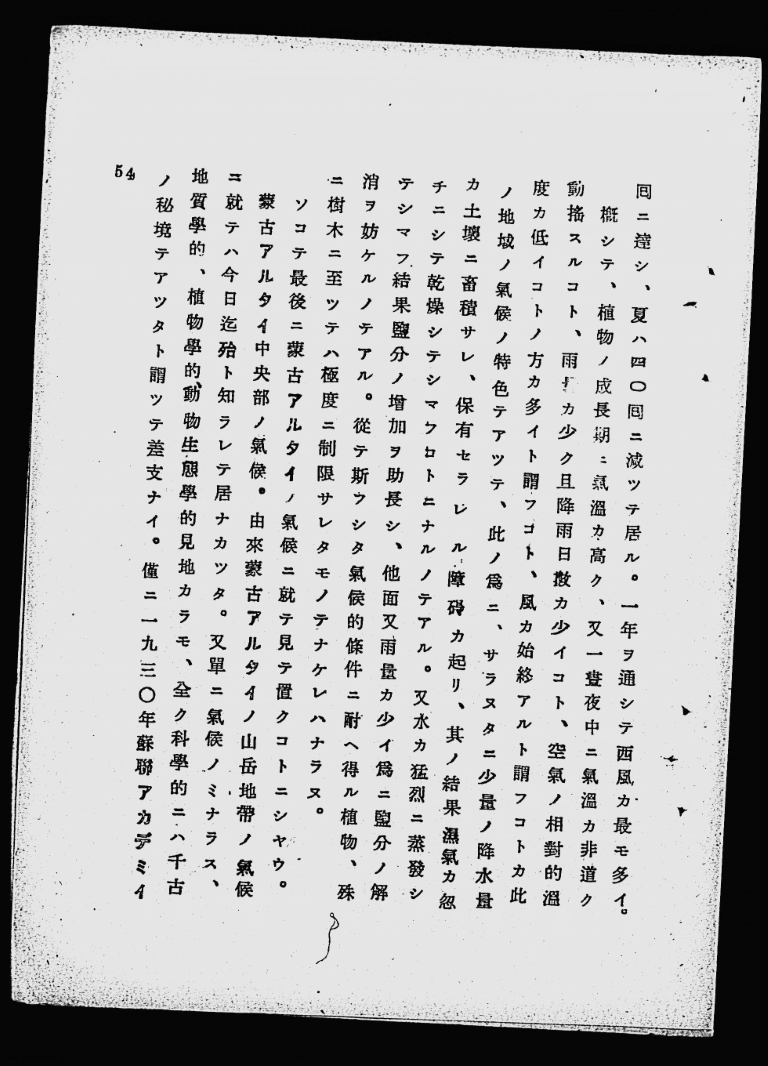 囘ニ達シ、夏ハ四〇囘ニ減ツテ居ル。一年ヲ通シテ西風カ最モ多イ。
槪シテ、植物ノ成長期ニ氣溫カ高ク、又一晝夜中ニ氣溫カ非道ク
動搖スルコト、雨量カ少ク且降雨日數カ少イコト、空氣ノ相對的溫
度カ低イコトノ方カ多イト謂フコト、風カ始終アルト謂フコトカ此
ノ地域ノ氣候ノ特色テアツテ、此ノ爲ニ、サラヌタニ少量ノ降水量
カ土壤ニ畜積サレ、保有セラレル障碍カ起リ、其ノ結果濕氣カ忽
チニシテ乾燥シテシマフコトニナルノテアル。又水カ猛烈ニ蒸發シ
テシマフ結果鹽分ノ增加ヲ助長シ、他面又雨量カ少イ爲ニ鹽分ノ解
消ヲ妨ケルノテアル。從テ斯ウシタ氣候的條件ニ耐ヘ得ル植物、殊
ニ樹木ニ至ツテハ極度ニ制限サレタモノテナケレハナラヌ。
ソコテ最後ニ蒙古アルタイノ氣候ニ就テ見テ置クコトニシヤウ。
蒙古アルタイ中央部ノ氣候。由來蒙古アルタイノ山岳地帶ノ氣候
ニ就テハ今日迄殆ト知ラレテ居ナカツタ。又單ニ氣候ノミナラス、
地質學的、植物學的、動物生態學的見地カラモ、全ク科學的ニハ千古
ノ秘境テアツタト謂ツテ差支ナイ。僅ニ一九三〇年蘇聯アカデミイ
54